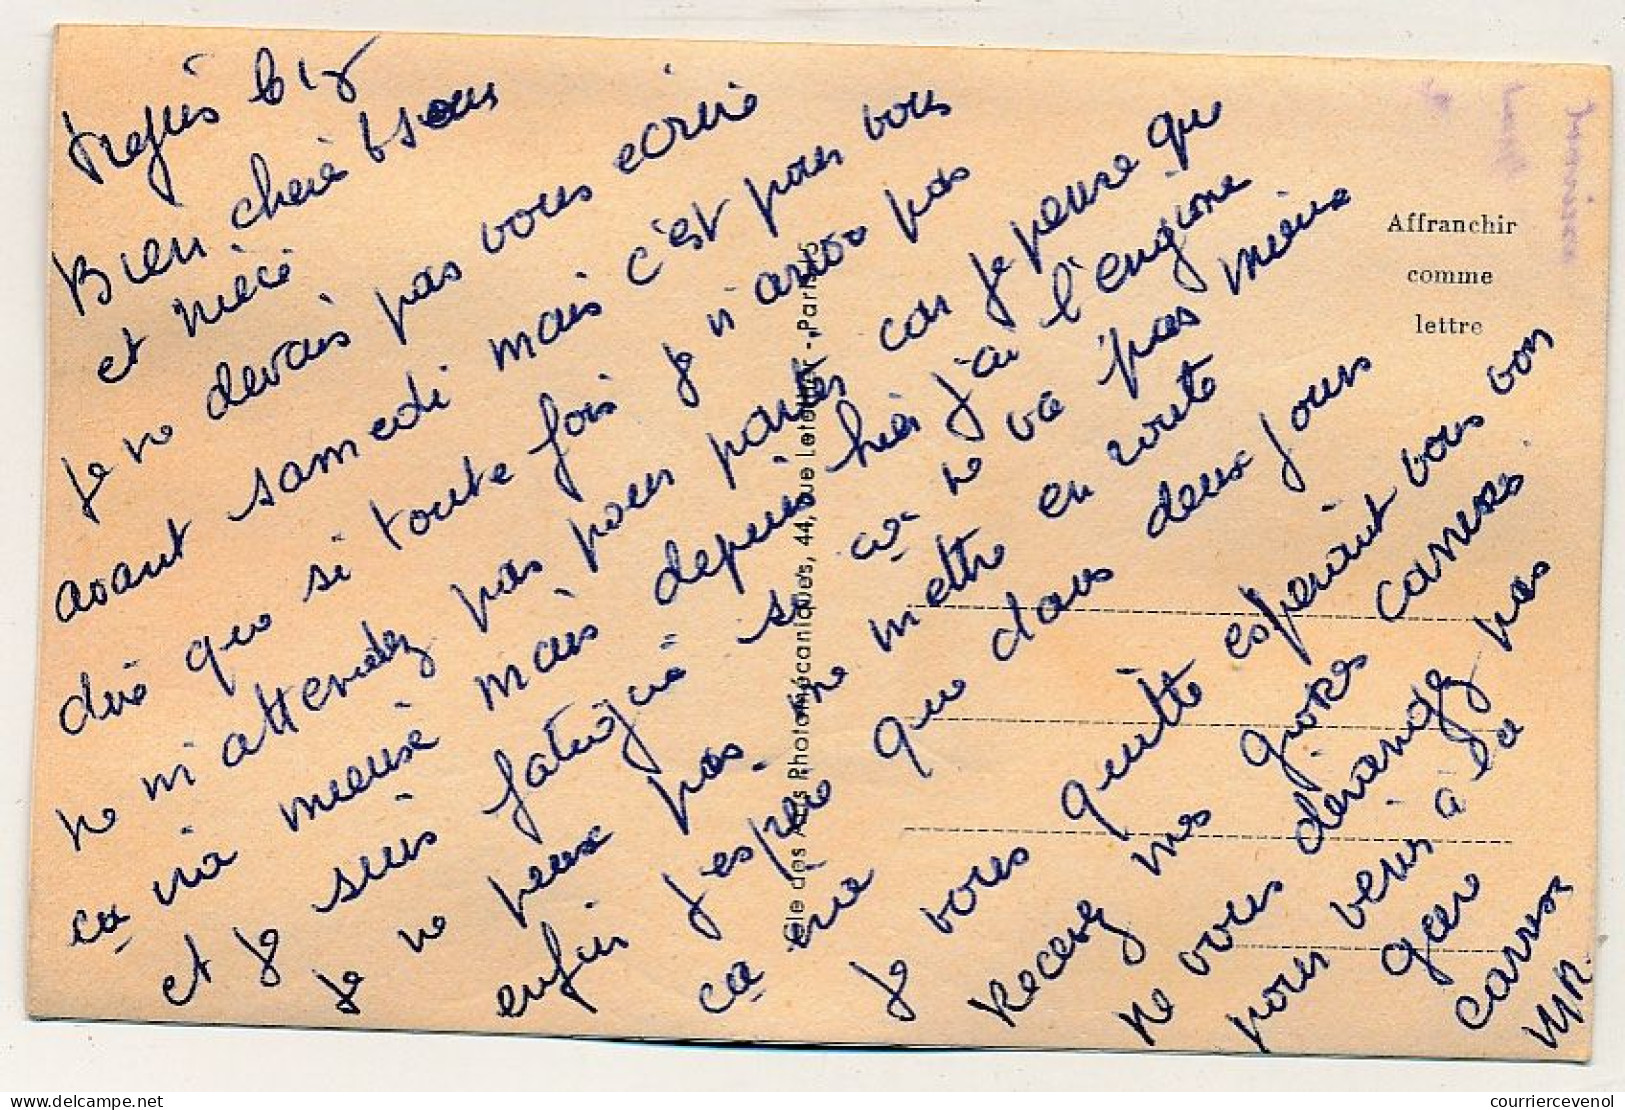 le 18
Bien chere
et mère
Je ne devais pas vous ecrire
avant samedi mais c'est pour vous
dire que si toute fois je n'arivo pas
ne m'attendez pas pour parler car je pense que
ça via mensé mais depuis hier j'ai l'engione
et je suis fatigué si ça ne va pas mieux
je ne peux pas me mettre en route
enfin j'espere que dans deux jours
ça
je vous quitte esperant vous voir
Recevez mes caresses
ne vous derangez pas
pour venir à la
gare
caresse
MR.
Affranchir
comme
lettre
44, rue Letellier - Paris
courriercevenol